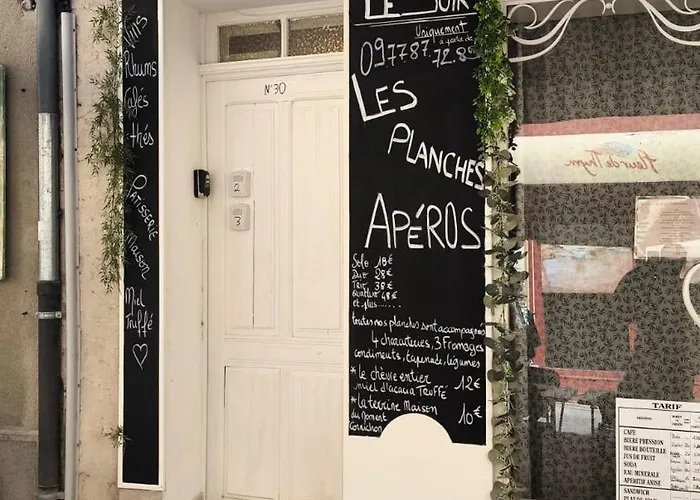 Vins
Rhums
Cafés
thés
PATISSERIE
Maison
Miel
Truffé
N°30
2
3
LE SOIR
Uniquement
à partir de
09 77 87
72.85
LES
PLANCHES
APÉROS
Solo 18€
Duo 28€
Trio 38€
Quattuor 48€
et plus......
toutes nos planches sont accompagnées
4 charcuteries, 3 Fromages
condiments, tapenade, légumes
*le chèvre entier
miel d'acacia TRUFFÉ 12€
*la terrine Maison
du moment 10€
Cornichon
fleur de Thym
TARIF
CAFE
BIERE PRESSION
BIERE BOUTEILLE
JUS DE FRUIT
SODA
EAU MINERALE
APERITIF ANISE
SANDWICH
PLAT DU JOUR